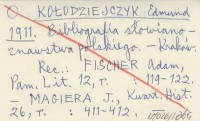 KOŁODZIEJCZYK Edmund
1911. Bibliografia słowiano-
znawstwa polskiego. - Kraków.
Rec.: FISCHER Adam,
Pam. Lit. 12, r. : 119-122.
- MAGIERA J., Kwart. Hist.
26, r. : 411-412.